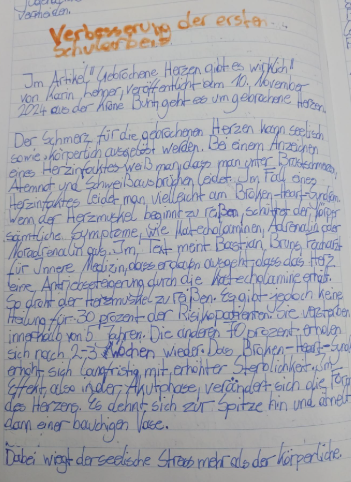 verstanden.
Verbesserung der ersten
Schularbeit
Im Artikel "Gebrochene Herzen gibt es wirklich"
von Karin Lehner, veröffentlicht am 10. November
2024 aus der Krone Bunt geht es um gebrochene Herzen.
Der Schmerz für die gebrochenen Herzen kann seelisch
sowie körperlich ausgelöst werden. Bei einem Anzeichen
eines Herzinfarktes weiß man, dass man unter Brustschmerzen,
Atemnot und Schweißausbrüchen leidet. Im Fall eines
Herzinfarktes leidet man vielleicht am Broken-Heart-Syndrom.
Wenn der Herzmuskel beginnt zu reißen, schüttet der Körper
sämtliche Symptome, wie Katecholaminen, Adrenalin oder
Noradrenalin aus. Im Text meint Bastian, Bruns, Facharzt
für Innere Medizin, dass er davon ausgeht, dass das Herz
eine Antriebssteigerung durch die Katecholamine erhält.
So droht der Herzmuskel zu reißen. Es gibt jedoch keine
Heilung für 30 prozent der Risikopatienten. Sie versterben
innerhalb von 5 Jahren. Die anderen 70 prozent, erholen
sich nach 2-3 Wochen wieder. Das Broken-Heart-
erhöht, sich langfristig mit, erhöhter Sterblichkeit. Im
Efekt, also in der Akutphase, verändert sich die Form
des Herzens. Es dehnt sich zur Spitze hin und ähnelt
dann einer bauchigen Vase.
Dabei wiegt der seelische Stress mehr als der Körperliche